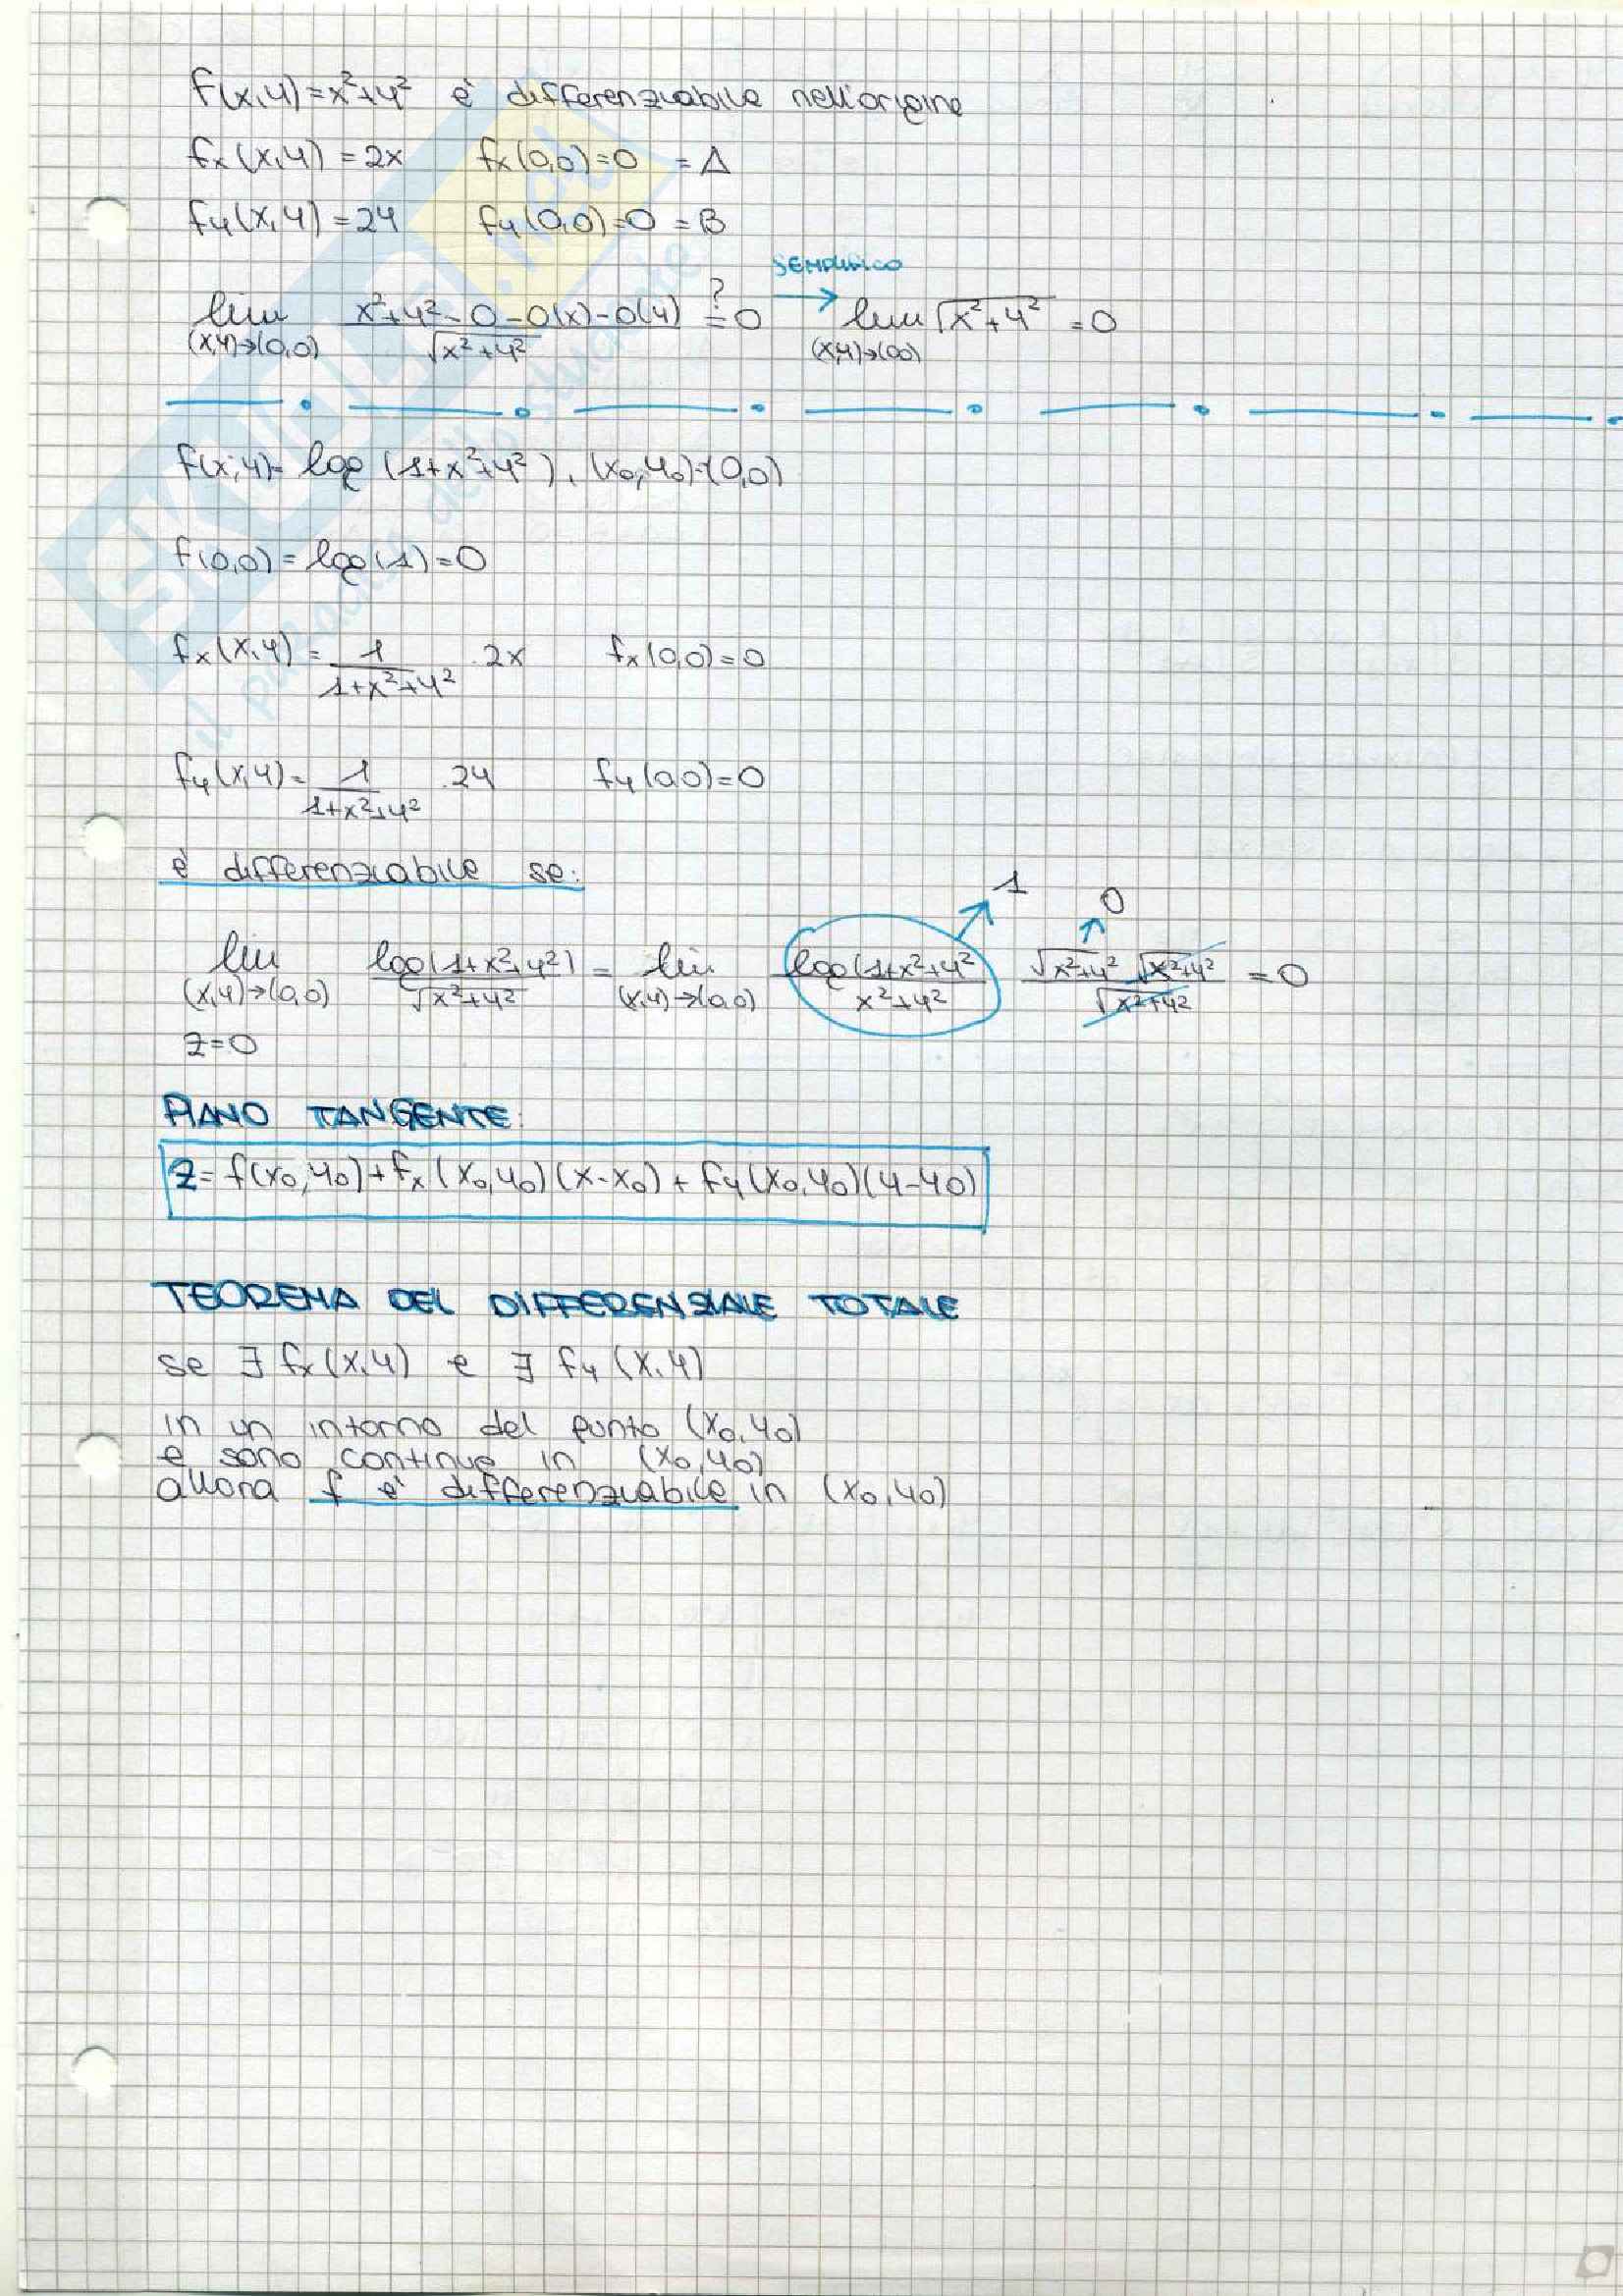 f(x,y)=x²+y² è differenziabile nell'origine
fx(x,y)=2x fx(0,0)=0 =A
fy(x,y)=2y fy(0,0)=0 =B
SEMPLIFICO
lim (x,y)→(0,0) x²+y²-0-0(x)-0(y) / √x²+y² =? 0 → lim (x,y)→(0,0) √x²+y² =0
f(x,y)= log (1+x²+y²), (x0,y0)=(0,0)
f(0,0)=log(1)=0
fx(x,y)= 1/1+x²+y² · 2x fx(0,0)=0
fy(x,y)= 1/1+x²+y² · 2y fy(0,0)=0
è differenziabile se:
1 0
lim (x,y)→(0,0) log(1+x²+y²) / √x²+y² = lim (x,y)→(0,0) log(1+x²+y² / x²+y² √x²+y² √x²+y² / √x²+y² =0
z=0
PIANO TANGENTE:
z=f(x0,y0)+fx(x0,y0)(x-x0)+fy(x0,y0)(y-y0)
TEOREMA DEL DIFFERENZIALE TOTALE
se ∃ fx(x,y) e ∃ fy (x,y)
in un intorno del punto (x0,y0)
e sono continue in (x0,y0)
allora f è differenziabile in (x0,y0)